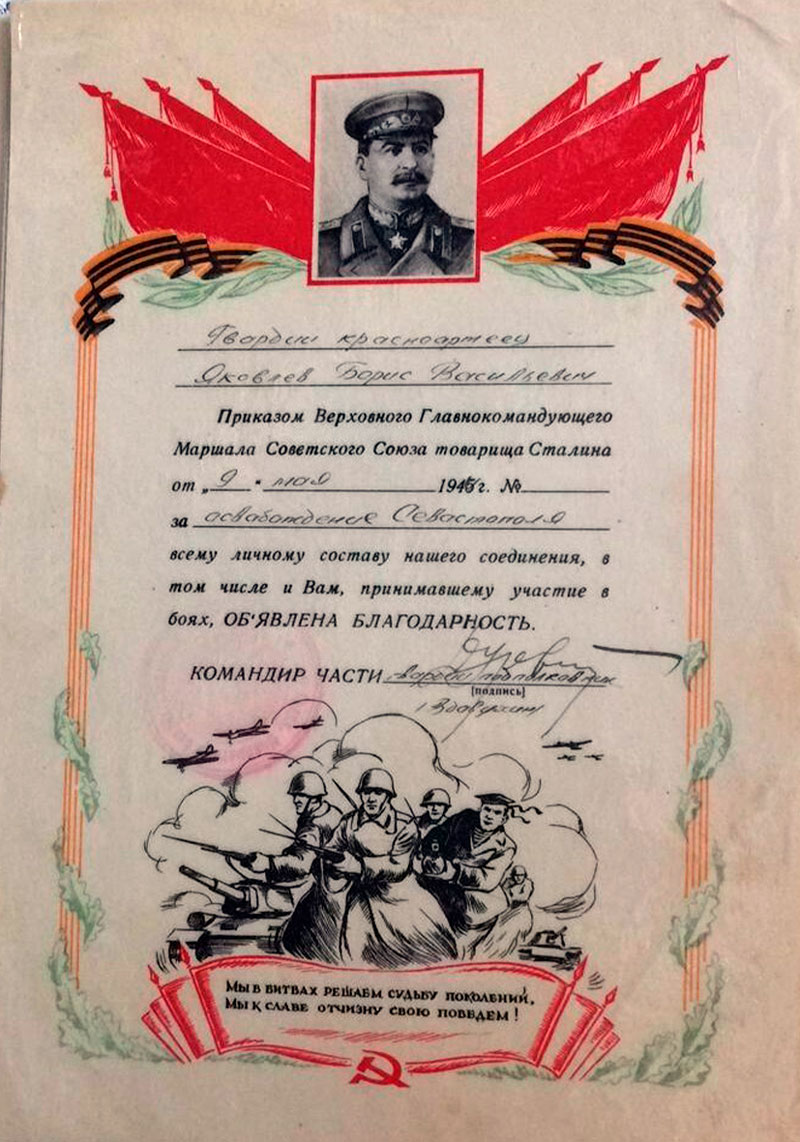 Гвардии красноармеец
Яковлев Борис Васильевич
Приказом Верховного Главнокомандующего
Маршала Советского Союза товарища Сталина
от „9" мая 194 г. №
за освобождение Севастополя
всему личному составу нашего соединения, в
том числе и Вам, принимавшему участие в
боях, ОБ'ЯВЛЕНА БЛАГОДАРНОСТЬ.
КОМАНДИР ЧАСТИ гвардии подполковник
(подпись)
МЫ В БИТВАХ РЕШАЕМ СУДЬБУ ПОКОЛЕНИЙ,
МЫ К СЛАВЕ ОТЧИЗНУ СВОЮ ПОВЕДЕМ!